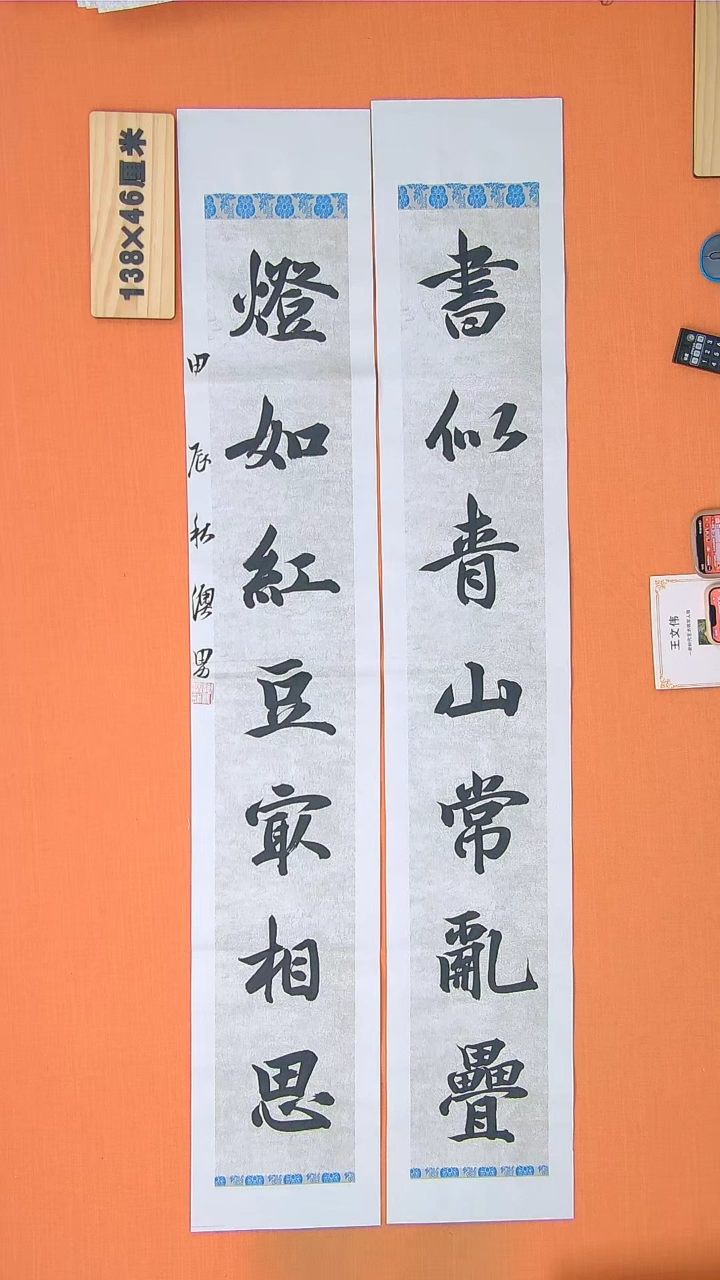 書似青山常亂疊
燈如紅豆㝡相思
甲辰秋 男
138×46厘米
王文伟